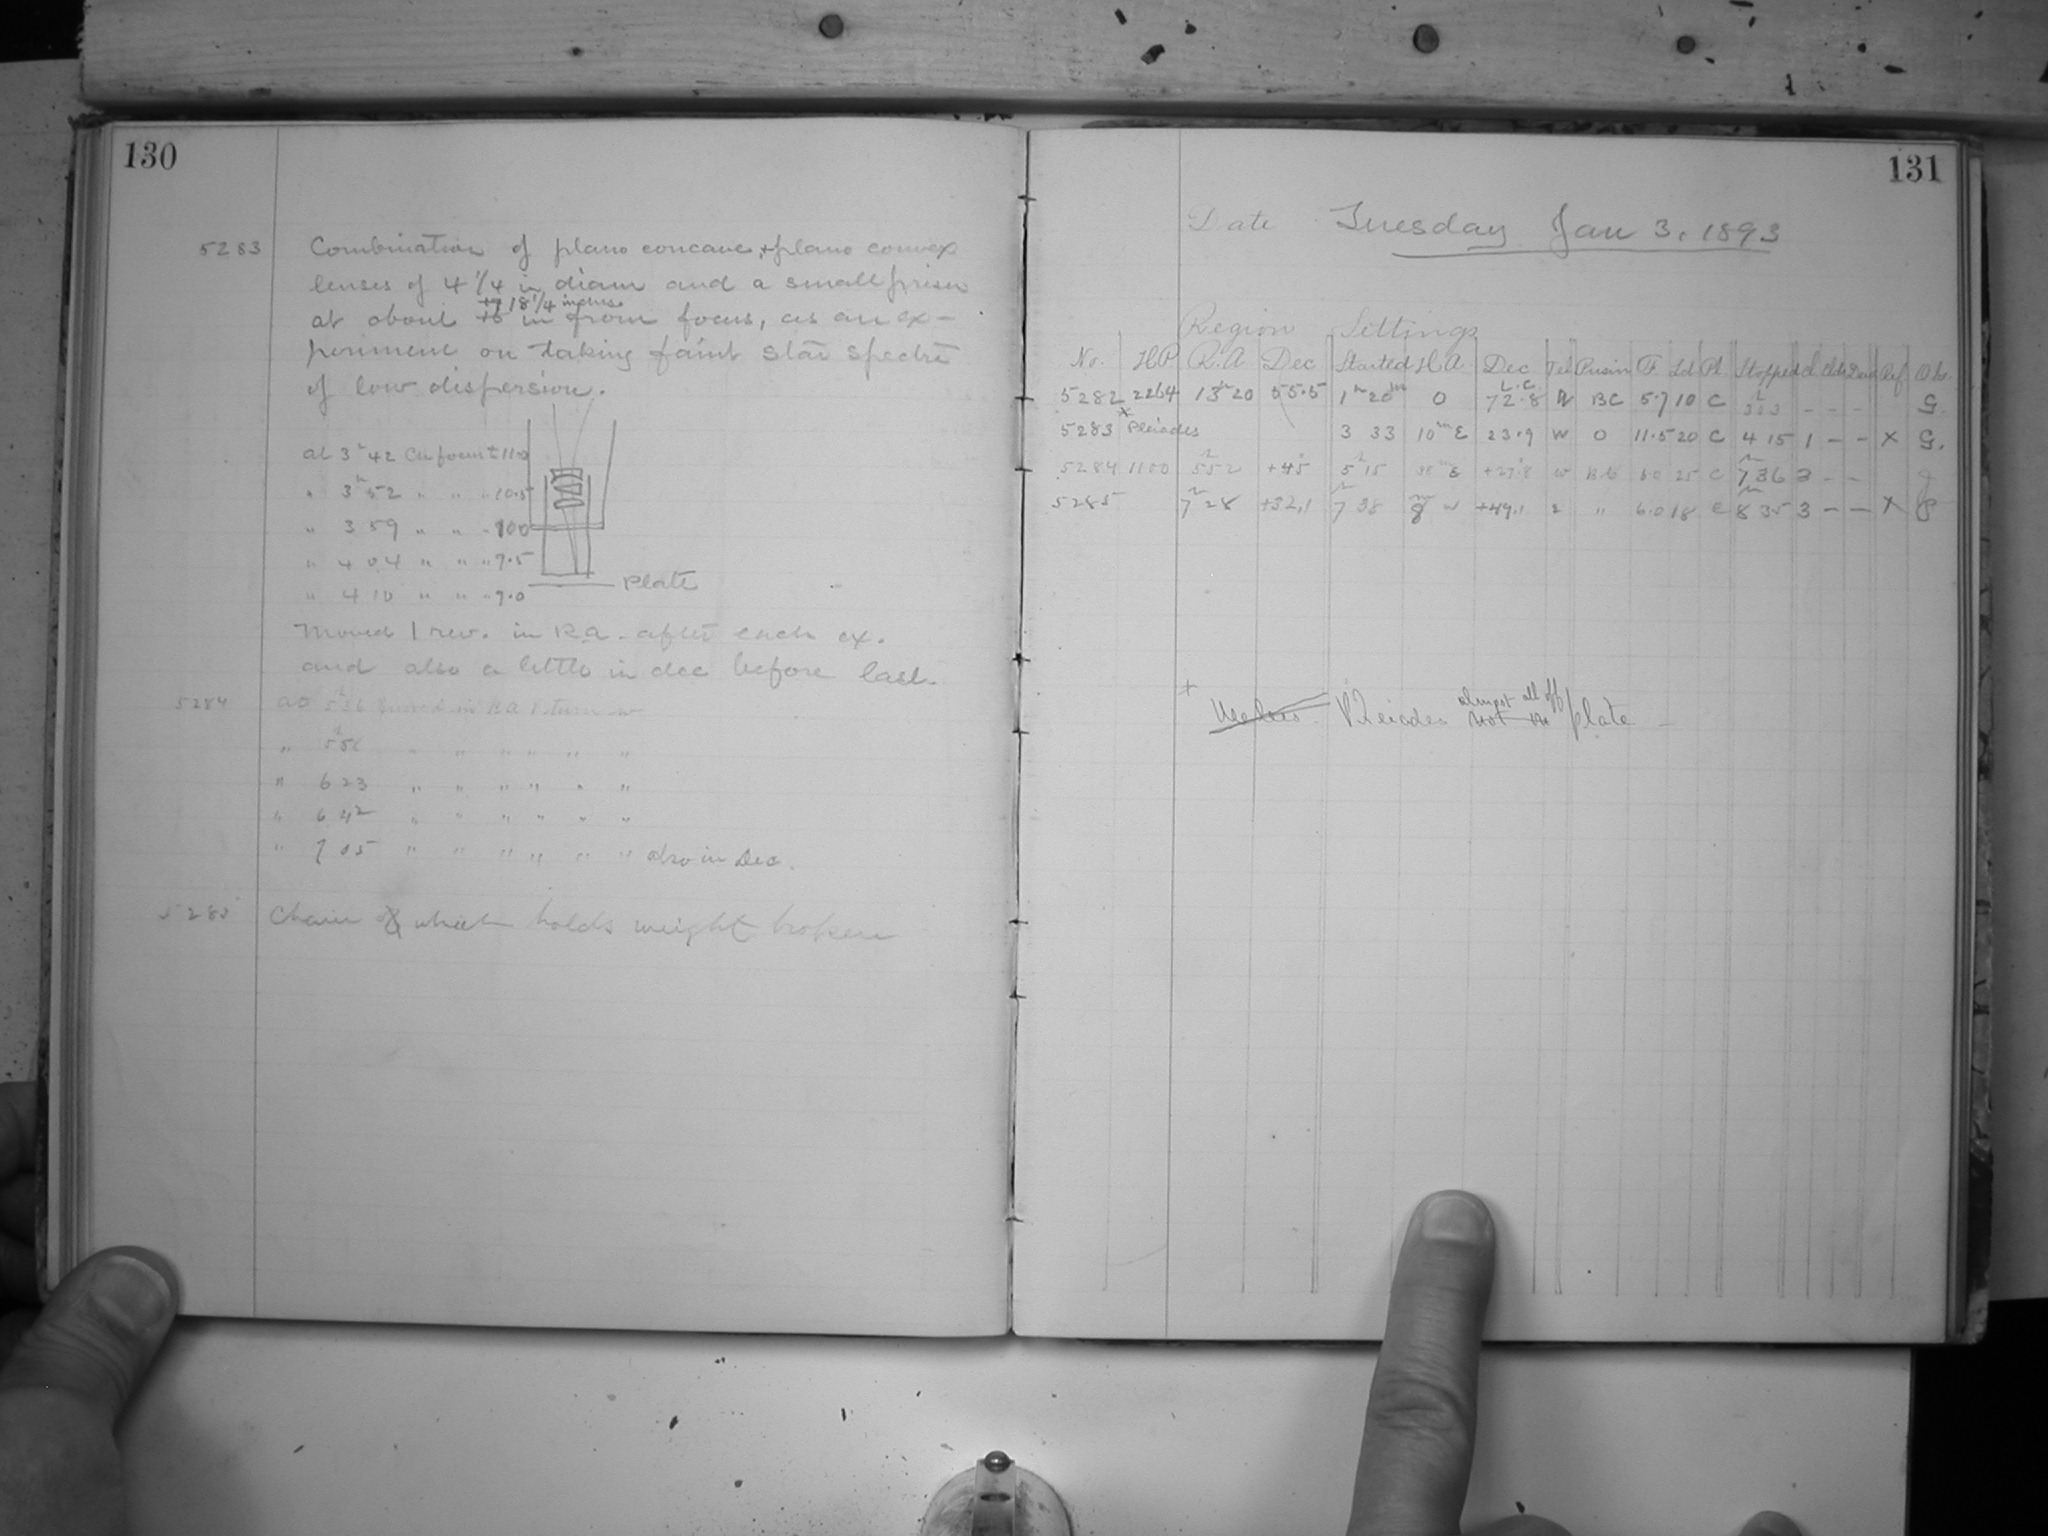 130
5283 Combination of plano concave + plano convex
lenses of 4 1/4 in diam and a small prism
18 1/4 inches
at about in from focus, as an ex-
periment on taking faint star spectra
of low dispersion.
at 3h 42 Cu focus 11.0
" 3h 52 " " " 10.5
" 3 59 " " " 10.0
" 4 04 " " " 9.5
" 4 10 " " " 9.0
Plate
Moved 1 rev. in R.a. after each ex.
and also a little in dec before last.
5284 at 5h 36 moved in RA 1 turn w
" 5h 58 " " " " " "
" 6 23 " " " " " "
" 6 42 " " " " " "
" 7 05 " " " " " " also in Dec.
5285 Chain which holds weight broken
131
Date Tuesday Jan 3, 1893
Region Settings
No. H.P. R.A Dec Started H.A Dec Tel Prism F Ld Pl Stopped Cl Clds Ref Obs.
5282 2264 13h 20 55.5 1h 20m 0 L.C. 72.8 BC 5.7 10 C - - - G.
5283 * Pleiades 3 33 10m E 23.9 W 0 11.5 20 C 4 15 1 - - X G.
5284 1100 5h 52 +45 5h 15 E W 25 C 7h 36 3 - -
5285 7h 28 +32.1 7h 38 8m W +49.1 " " 6.0 18 C 8h 35 3 - - X
+ Useless. Pleiades almost all off plate -